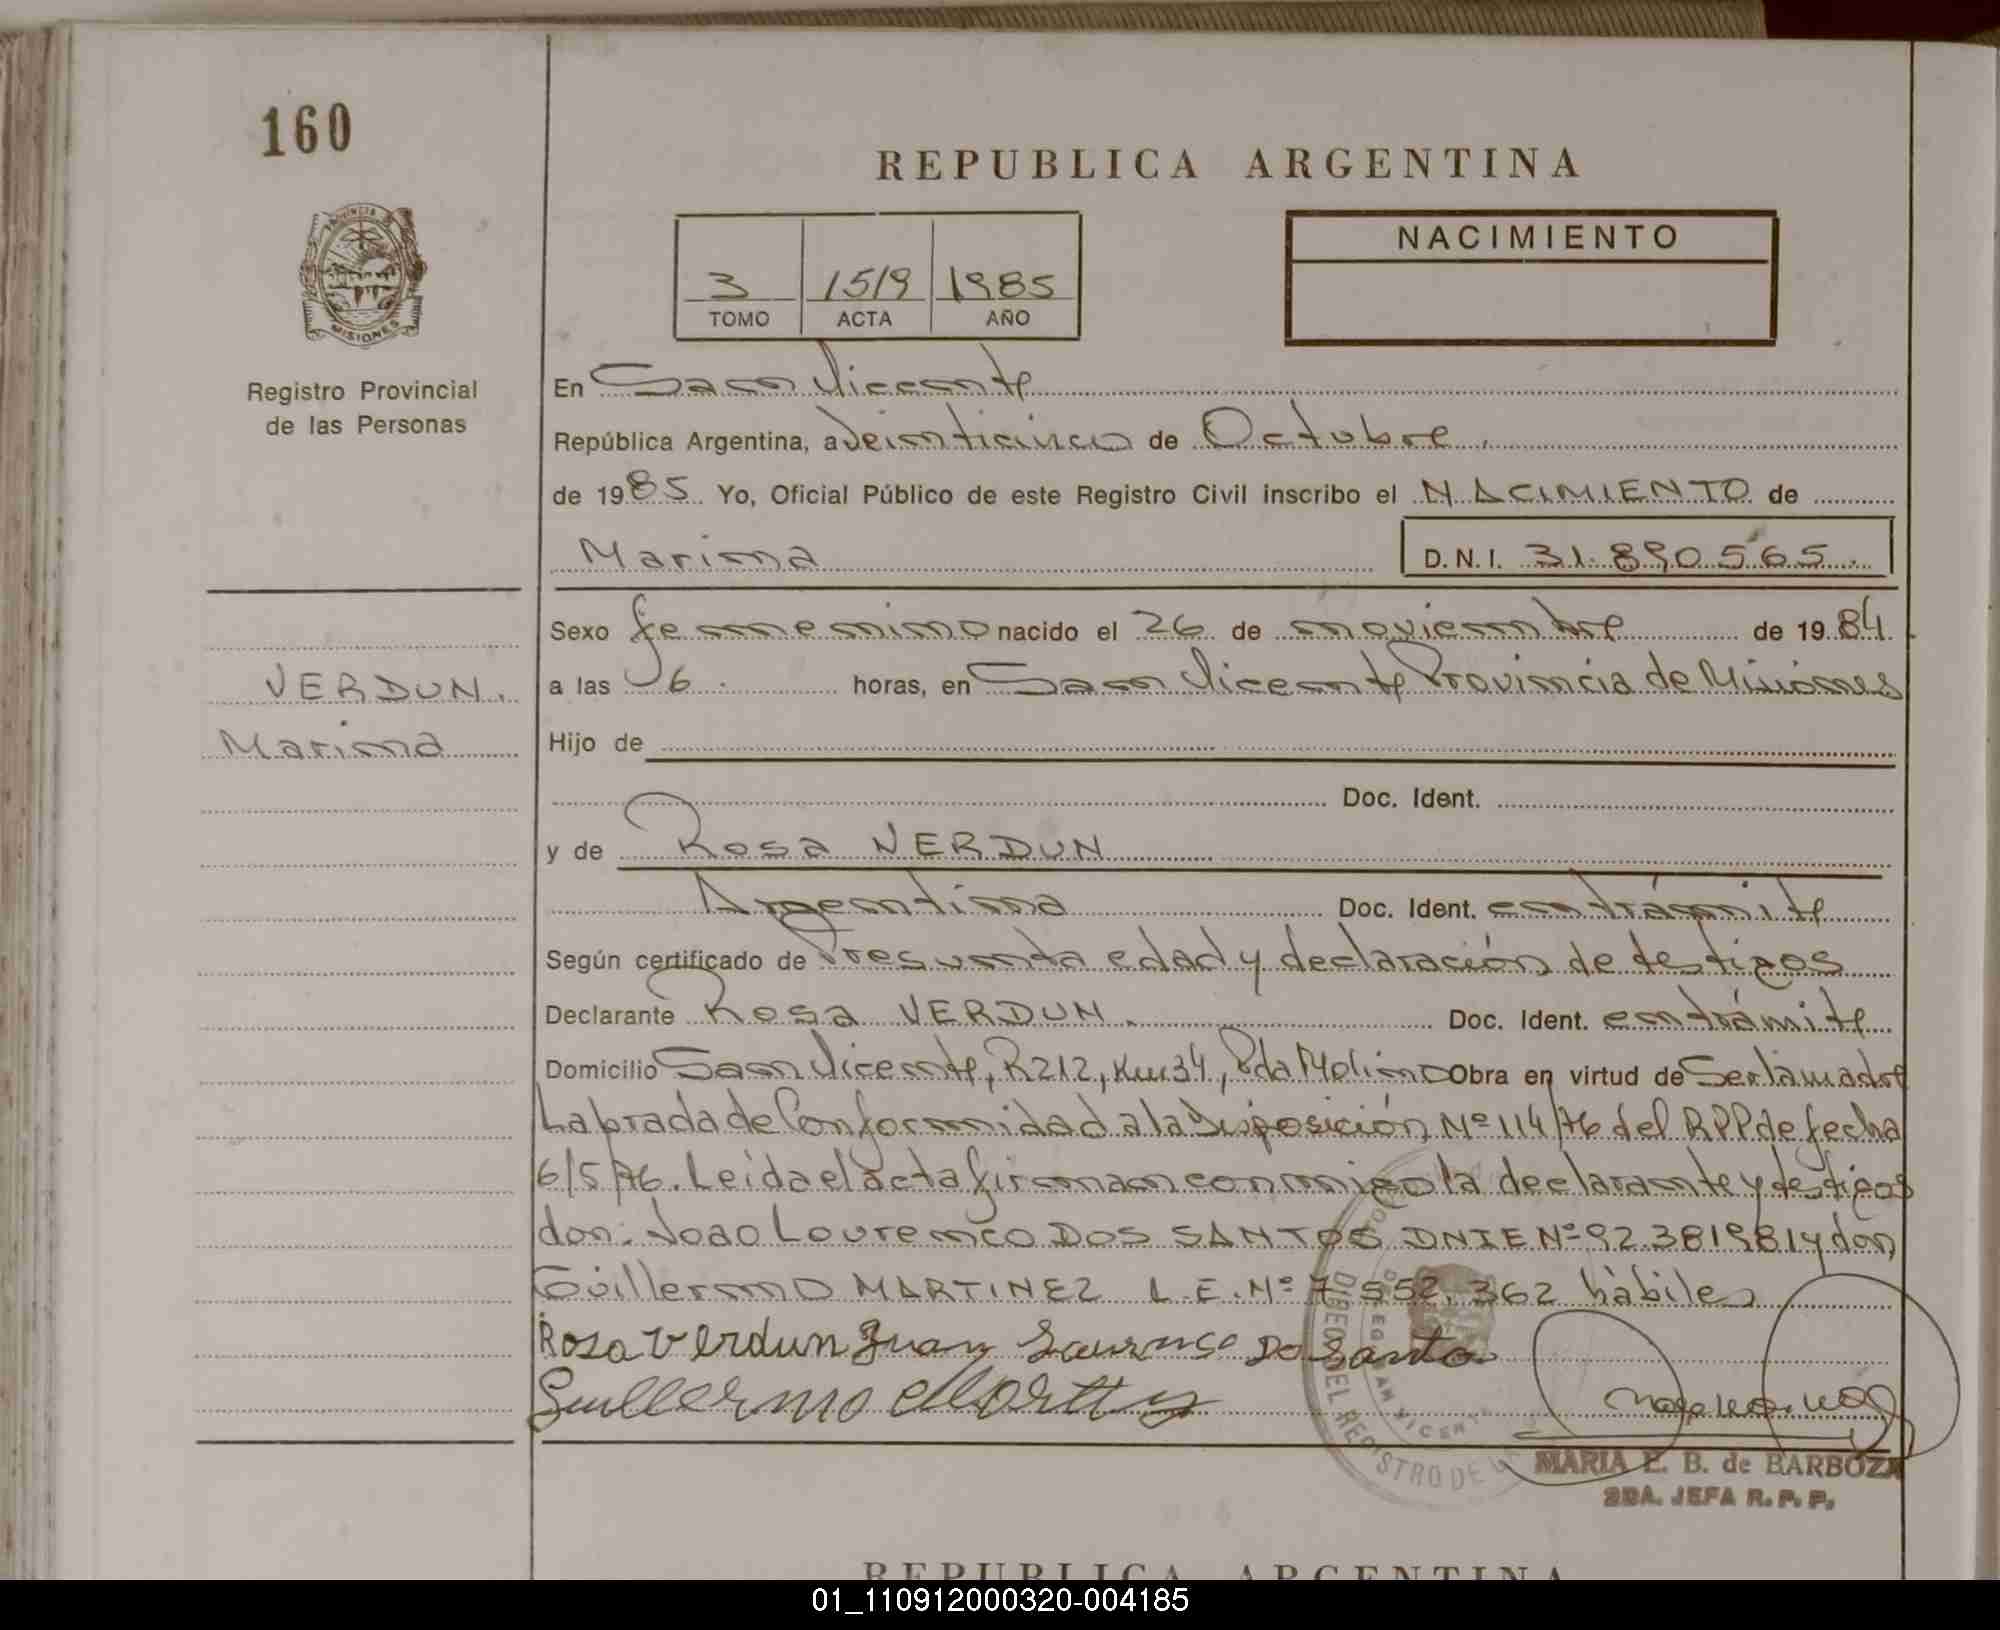 160
REPUBLICA ARGENTINA
PROVINCIA DE
MISIONES
3 1519 1985
TOMO ACTA AÑO
NACIMIENTO
Registro Provincial
de las Personas
En San Vicente
República Argentina, a veinticinco de Octubre
de 1985 Yo, Oficial Público de este Registro Civil inscribo el NACIMIENTO de
Marina D.N.I. 31.890.565.
Sexo femenino nacido el 26 de noviembre de 1984
VERDUN.
Marina
a las 6 horas, en San Vicente Provincia de Misiones
Hijo de
Doc. Ident.
y de Rosa VERDUN
Argentina Doc. Ident. en trámite
Según certificado de Presunta edad y declaración de testigos
Declarante Rosa VERDUN. Doc. Ident. en trámite
Domicilio San Vicente, R212, Km 34, Pda Molino Obra en virtud de Ser la madre
Labrada de Conformidad a la Disposición Nº 114/76 del RPP de fecha
6/5/76. Leída el acta firman conmigo la declarante y testigos
don: Joao Lourenco DOS SANTOS DNIE Nº 92.381981 y don
Guillermo MARTINEZ L.E. Nº 7.552.362 hábiles
Rosa Verdun Juan Lourenso Do Santo
Guillermo Martinez
DEL REGISTRO DE
SAN VICENTE
MARIA E. B. de BARBOZA
2DA. JEFA R. P. P.
REPUBLICA ARGENTINA
01_110912000320-004185